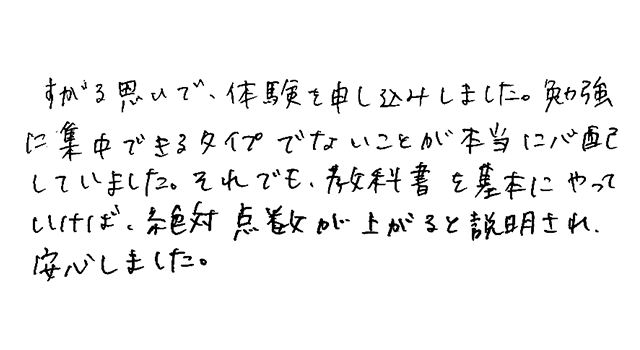 すがる思いで、体験を申し込みしました。勉強
に集中できるタイプでないことが本当に心配
していました。それでも、教科書を基本にやって
いけば、絶対点数が上がると説明され、
安心しました。